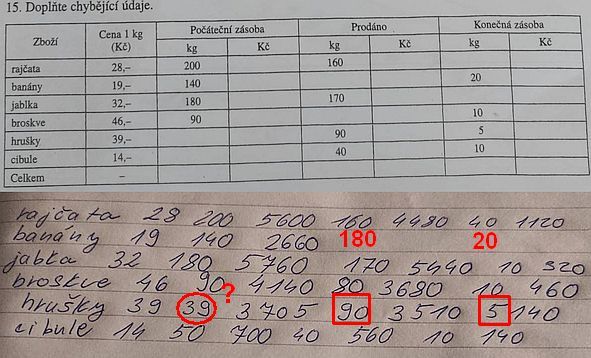 15. Doplňte chybějící údaje.
Zboží Cena 1 kg (Kč) Počáteční zásoba Prodáno Konečná zásoba
kg Kč kg Kč kg Kč
rajčata 28,– 200 160
banány 19,– 140 20
jablka 32,– 180 170
broskve 46,– 90 10
hrušky 39,– 90 5
cibule 14,– 40 10
Celkem –
rajčata 28 200 5600 160 4480 40 1120
banány 19 140 2660 180 20
jabka 32 180 5760 170 5440 10 320
broskve 46 90 ? 4140 80 3680 10 460
hrušky 39 39 3705 90 3510 5 140
cibule 14 50 700 40 560 10 140